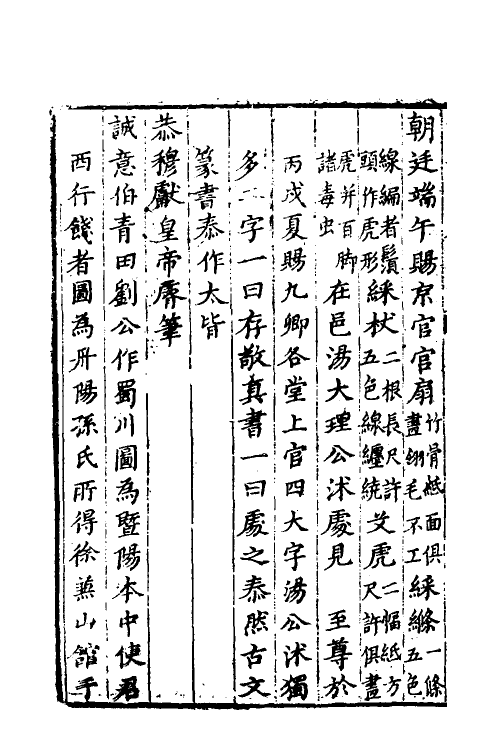 朝廷端午賜京官官扇竹骨紙面俱畫翎毛不工綵縧一條五色
線編者鬚頭作虎形綵杖二根長尺許五色線纏繞艾虎二幅紙方尺許俱畫
虎并百脚諸毒虫在邑湯大理公沭處見 至尊於
丙戌夏賜九卿各堂上官四大字湯公沭獨
多二字一曰存敬真書一曰處之泰然古文
篆書泰作太皆
恭穆獻皇帝筆
誠意伯青田劉公作蜀川圖為暨陽本中使君
西行餞者圖為丹陽孫氏所得徐燕山館于